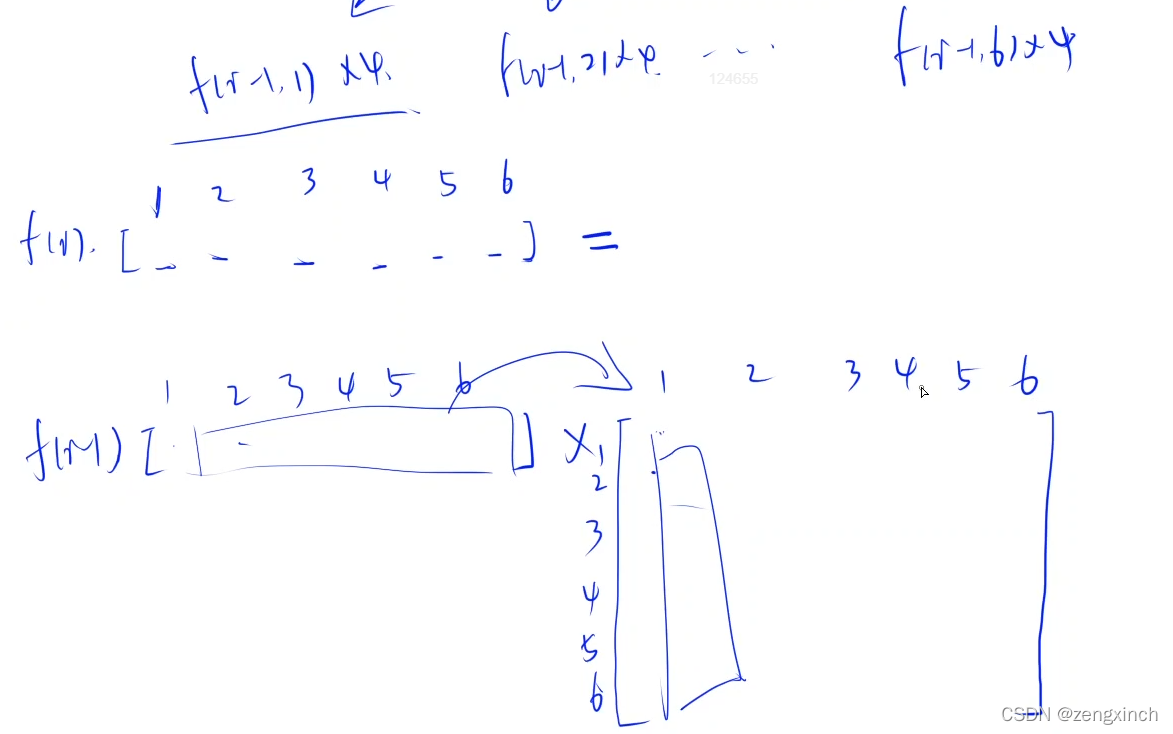 f(n-1,1) ×4. f(n-1,2)×4. ... f(n-1,6)×4
124655
1 2 3 4 5 6
f(n). [ - - - - - - ] =
1 2 3 4 5 6 1 2 3 4 5 6
f(n-1) [ ] × 1 [ ]
2
3
4
5
6
CSDN @zengxinch